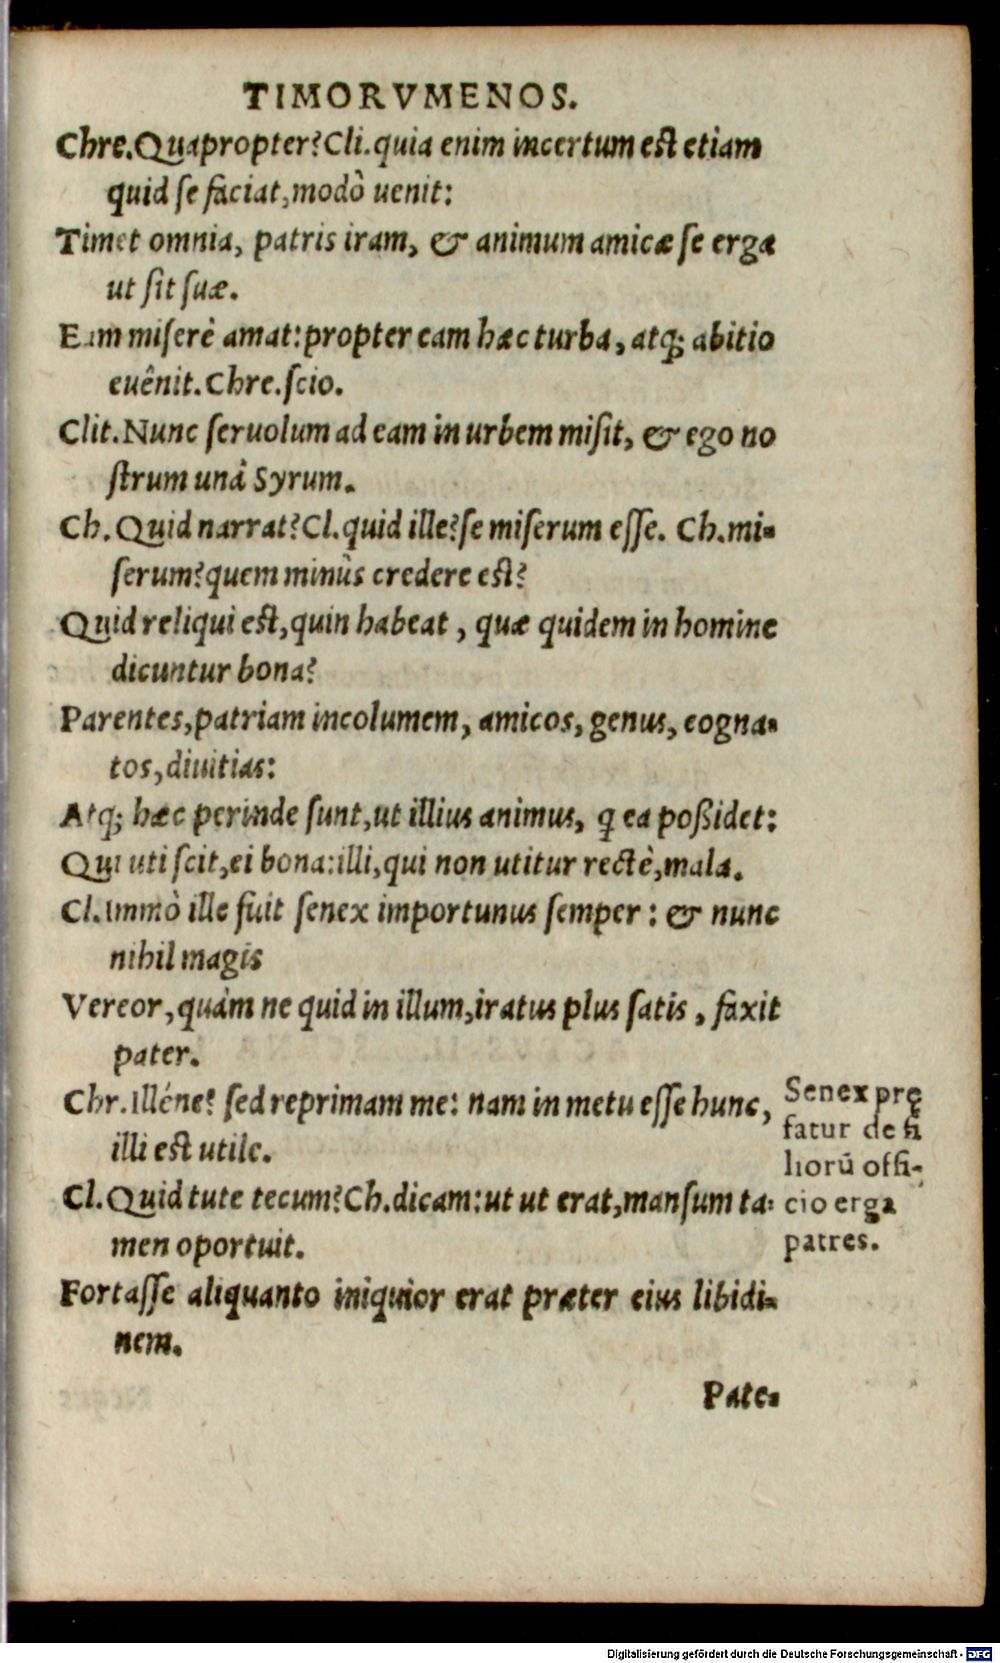 TIMORVMENOS.
Chre. Quapropter? Cli. quia enim incertum est etiam
quid se faciat, modò uenit:
Timet omnia, patris iram, & animum amicæ se erga
ut sit suæ.
Eam miserè amat: propter eam hæc turba, atq; abitio
euênit. Chre. scio.
Clit. Nunc seruolum ad eam in urbem misit, & ego no
strum unâ Syrum.
Ch. Quid narrat? Cl. quid ille? se miserum esse. Ch. mi-
serum? quem minùs credere est?
Quid reliqui est, quin habeat, quæ quidem in homine
dicuntur bona?
Parentes, patriam incolumem, amicos, genus, cogna-
tos, diuitias:
Atq; hæc perinde sunt, ut illius animus, q ea poßidet:
Qui uti scit, ei bona: illi, qui non utitur rectè, mala.
Cl. Immò ille fuit senex importunus semper: & nunc
nihil magis
Vereor, quàm ne quid in illum, iratus plus satis, faxit
pater.
Chr. Illéne? sed reprimam me: nam in metu esse hunc,
illi est utile.
Cl. Quid tute tecum? Ch. dicam: ut ut erat, mansum ta-
men oportuit.
Fortasse aliquanto iniquior erat præter eius libidi-
nem.
Senex prę
fatur de fi
liorū offi-
cio erga
patres.
Pate-
Digitalisierung gefördert durch die Deutsche Forschungsgemeinschaft - DFG